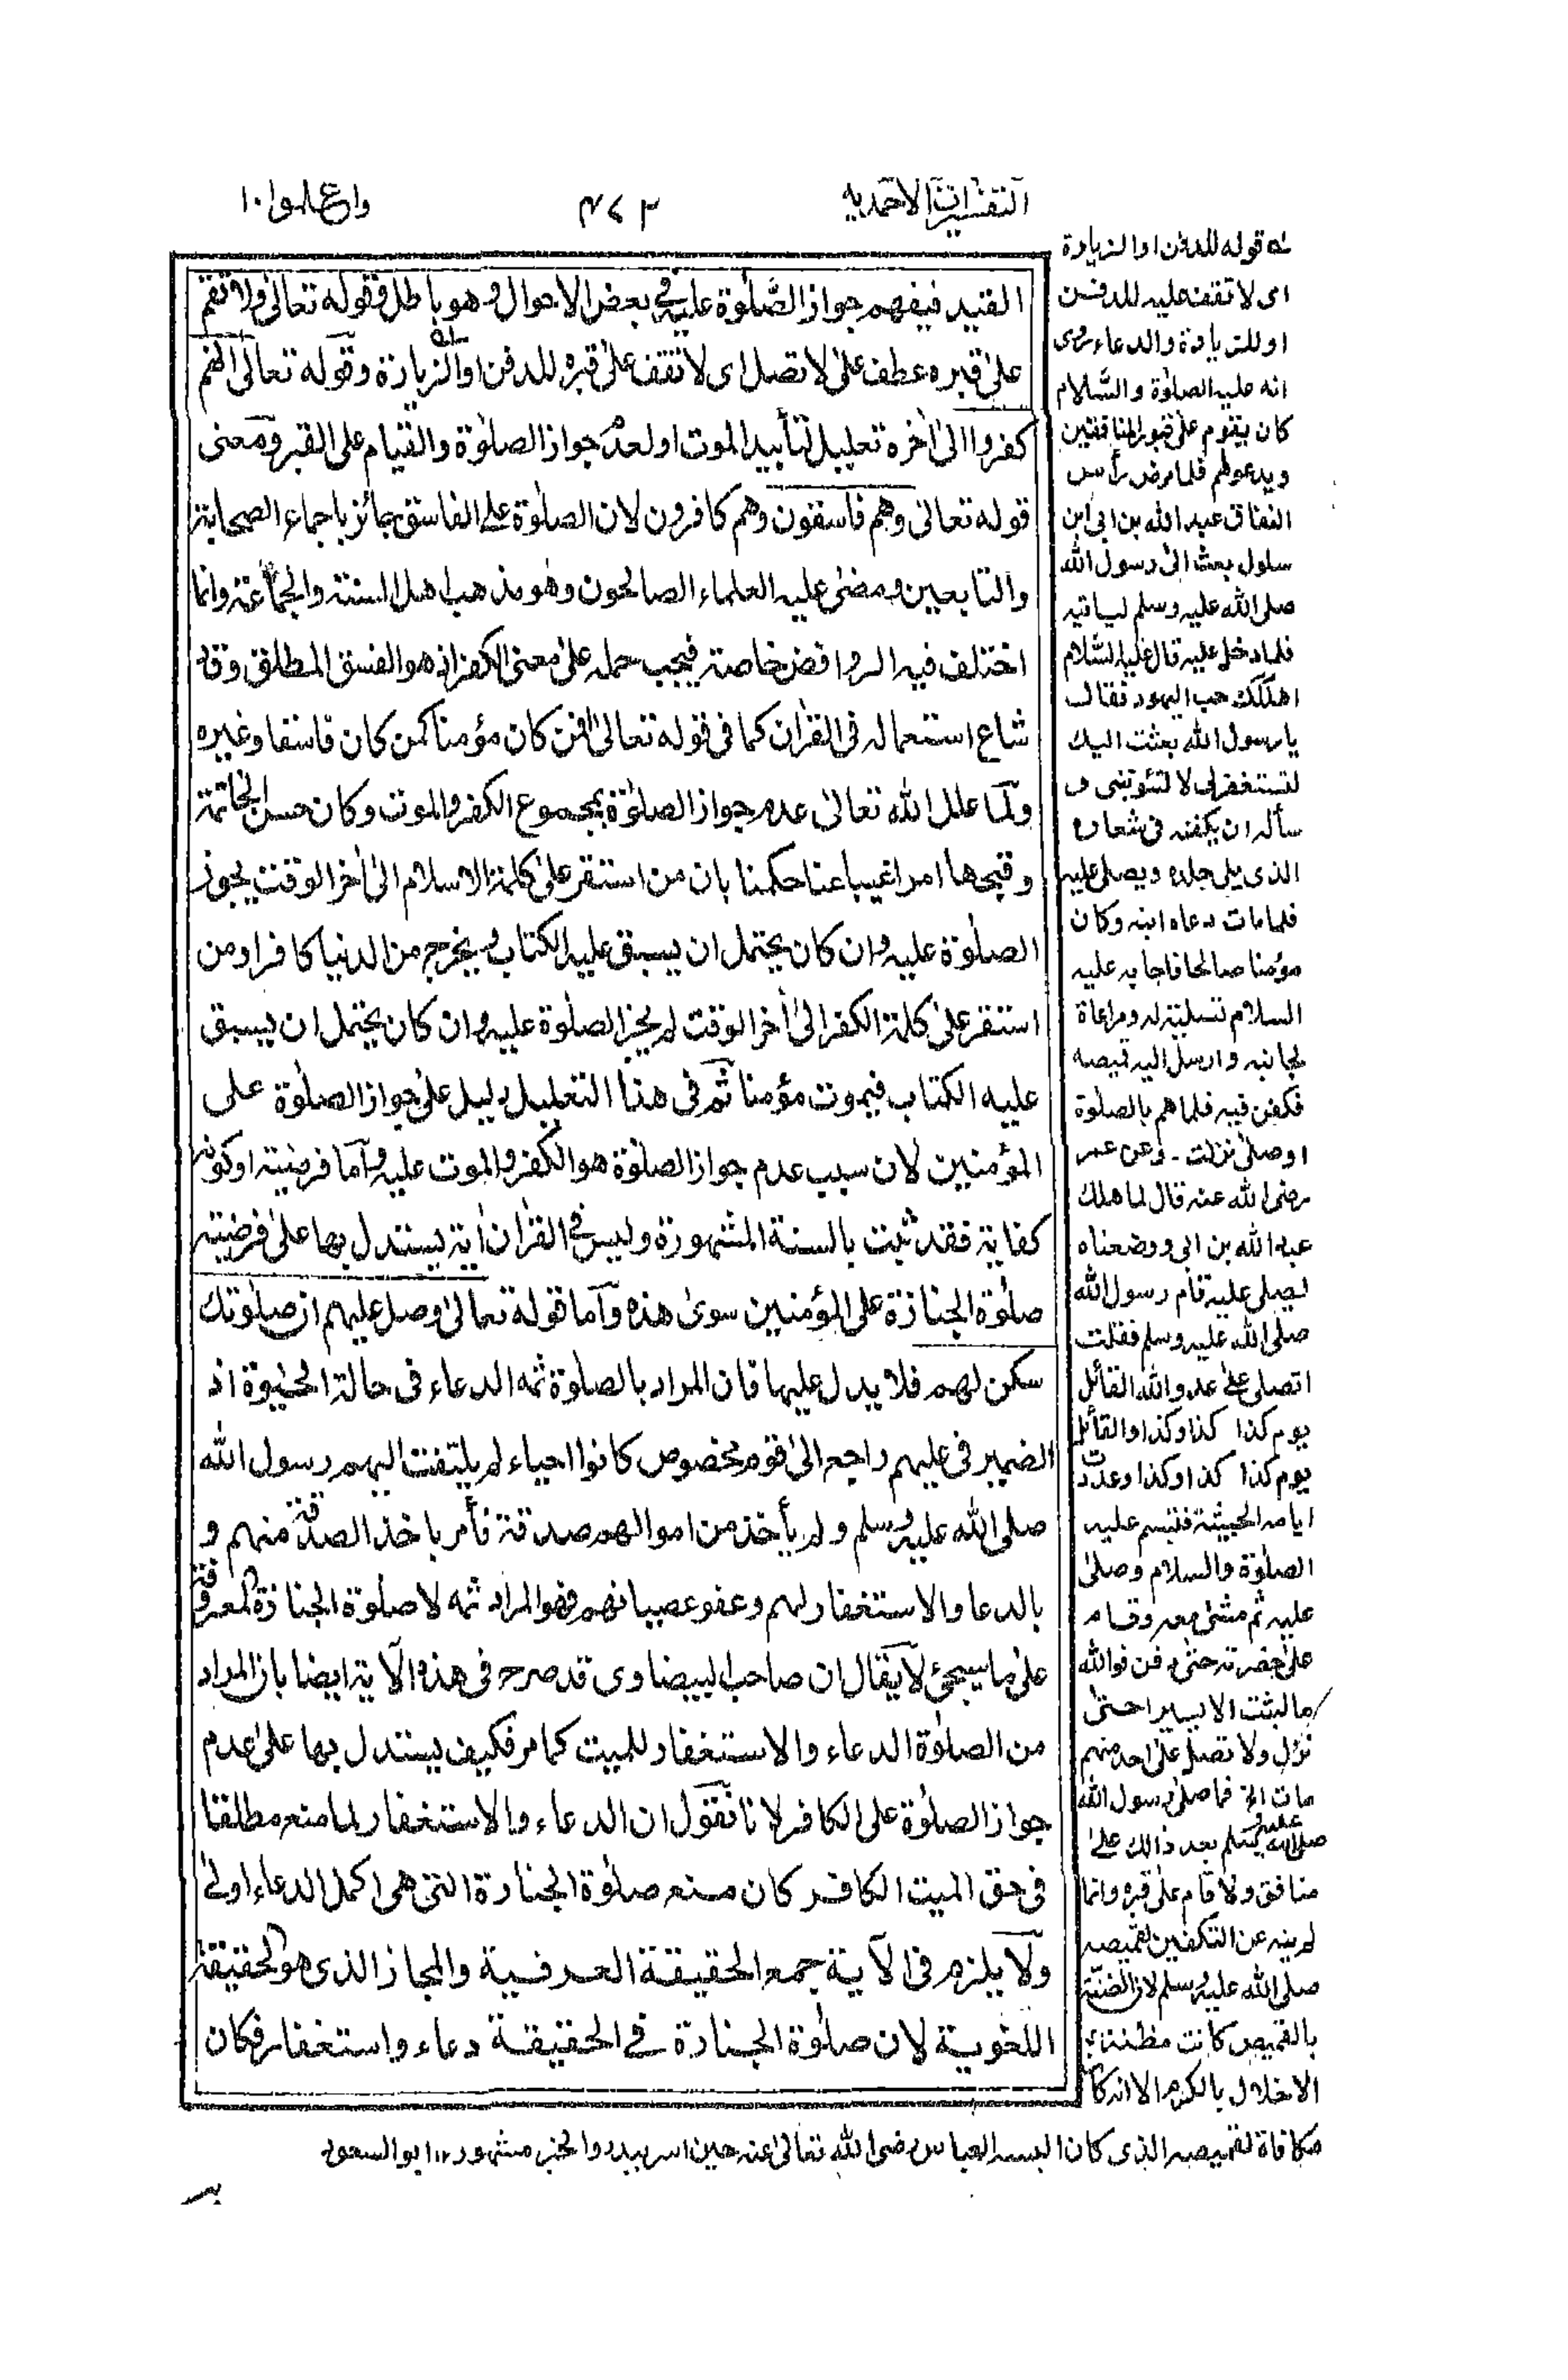 التفسيرات الاحمديه
٤٧٢
واعلموا ١٠
القيد فيفهم جواز الصّلٰوة عليه فى بعض الاحوال وهو باطل فقوله تعالىٰ ولا تقم
علىٰ قبره عطف علىٰ لا تصل اى لا تقف علىٰ قبره للدفن اوالزيارة وقوله تعالىٰ انهم
كفروا الىٰ اٰخره تعليل لتأبيد الموت اولعدم جواز الصلوٰة والقيام على القبر ومعنى
قوله تعالىٰ وهم فاسقون وهم كافرون لان الصلوٰة على الفاسق جائز باجماع الصحابة
والتابعين ومضىٰ عليه العلماء الصالحون وهو مذهب اهل السنة والجماعة وانما
اختلف فيه الروافض خاصة فيجب حمله علىٰ معنى الكفر اذ هو الفسق المطلق وقد
شاع استعماله فى القرٰان كما فى قوله تعالىٰ افمن كان مؤمنا كمن كان فاسقا وغيره
ولمّا علل الله تعالىٰ عدم جواز الصلوٰة بمجموع الكفر والموت وكان حسن الخاتمة
وقبحها امرا غيبا عنا حكمنا بان من استقر علىٰ كلمة الاسلام الىٰ اٰخر الوقت يجوز
الصلوٰة عليه وان كان يحتمل ان يسبق عليه الكتاب ويخرج من الدنيا كافرا ومن
استقر علىٰ كلمة الكفر الىٰ اٰخر الوقت لم يجز الصلوٰة عليه وان كان يحتمل ان يسبق
عليه الكتاب فيموت مؤمنا ثم فى هذا التعليل دليل علىٰ جواز الصلوٰة على
المؤمنين لان سبب عدم جواز الصلوٰة هو الكفر والموت عليه وآما فرضيته اوكونه
كفاية فقد ثبت بالسنة المشهورة وليس فى القرٰان اٰية يستدل بها علىٰ فرضية
صلوٰة الجنازة على المؤمنين سوىٰ هذه وآما قوله تعالىٰ وصل عليهم ان صلوٰتك
سكن لهم فلا يدل عليها فان المراد بالصلوٰة ثمه الدعاء فى حالة الحيٰوة اذ
الضمير فى عليهم راجع الىٰ قوم مخصوص كانوا احياء لم يلتفت اليهم رسول الله
صلى الله عليه وسلم ولم يأخذ من اموالهم صدقة فأمر باخذ الصدقة منهم و
بالدعا والاستغفار لهم وعفو عصيانهم فهو المراد ثمه لا صلوٰة الجنازة المعروفة
علىٰ ما سيجئ لا يقال ان صاحب البيضاوى قد صرح فى هذه الآية ايضا بان المراد
من الصلوٰة الدعاء والاستغفار للميت كما مر فكيف يستدل بها علىٰ عدم
جواز الصلوٰة على الكافر لانا نقول ان الدعاء والاستغفار لما منع مطلقا
فى حق الميت الكافر كان منع صلوٰة الجنازة التى هى اكمل الدعاء اولىٰ
ولا يلزم فى الآية جمع الحقيقة العرفية والمجاز الذى هو الحقيقة
اللغوية لان صلوٰة الجنازة فى الحقيقة دعاء واستغفار فكان
له قوله للدفن اوالزيارة
اى لا تقف عليه للدفن
اوللزيادة والدعاء روى
انه عليه الصلوٰة والسّلام
كان يقوم علىٰ قبور المنافقين
ويدعولهم فلما مرض رأس
النفاق عبد الله بن ابى ابن
سلول بعث الىٰ رسول الله
صلى الله عليه وسلم لياتيه
فلما دخل عليه قال عليه السّلام
اهلكك حب اليهود فقال
يا رسول الله بعثت اليك
لتستغفرلى لا لتؤنبنى و
سأله ان يكفنه فى شعاره
الذى يلى جلده ويصلى عليه
فلما مات دعاه ابنه وكان
مؤمنا صالحا فاجابه عليه
السلام تسلية له ومراعاة
لجانبه وارسل اليه قميصه
فكفن فيه فلما هم بالصلوٰة
اوصلىٰ نزلت - وعن عمر
رضى الله عنه قال لما هلك
عبد الله بن ابى ووضعناه
ليصلى عليه قام رسول الله
صلى الله عليه وسلم فقلت
اتصلى علىٰ عدو الله القائل
يوم كذا كذا وكذا والقائل
يوم كذا كذا وكذا وعددت
ايامه الخبيثة فتبسم عليه
الصلوٰة والسلام وصلىٰ
عليه ثم مشىٰ معه وقام
علىٰ حضرته حتىٰ دفن فوالله
ما لبثت الا يسيرا حتىٰ
نزل ولا تصل علىٰ احد منهم
مات الخ فما صلىٰ رسول الله
صلى الله عليه وسلم بعد ذالك علىٰ
منافق ولا قام علىٰ قبره وانما
لم ينه عن التكفين بقميصه
صلى الله عليه وسلم لان الضنّة
بالقميص كانت مظنة
الاخلال بالكرم الا انه كان
مكافاة لقميصه الذى كان البسه العباس رضى الله تعالىٰ عنه حين اسر ببدر والخبر مشهور ١٢ ابو السعود